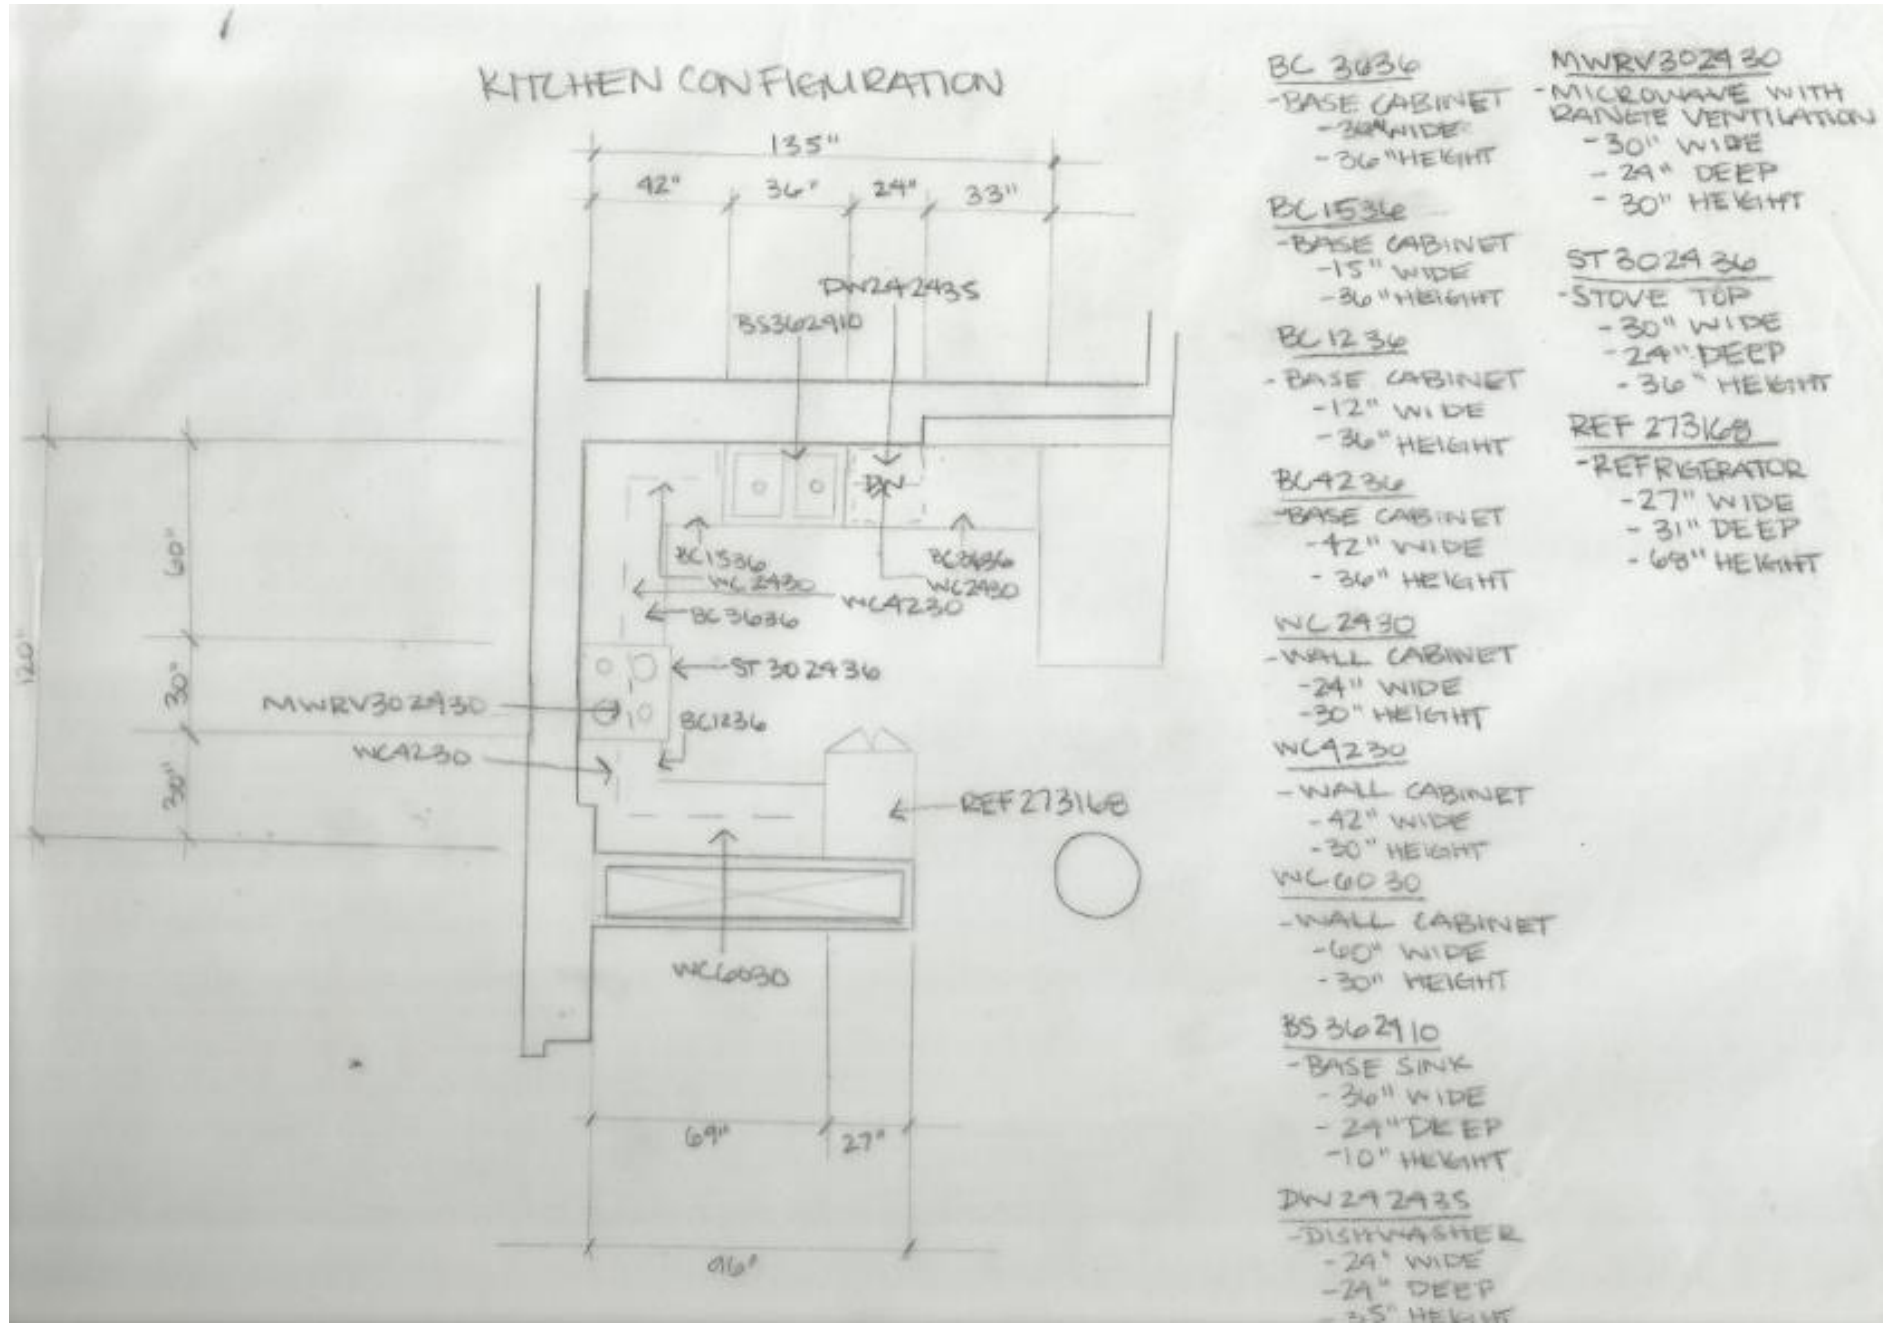 KITCHEN CONFIGURATION
135"
42" 36" 24" 33"
DW242435
BS362410
DW
BC1536
WC2430
BC3636
WC2430
WC4230
BC3636
ST302436
MWRV302430
BC1236
WC4230
REF273168
WC6030
120"
60"
30"
30"
69"
27"
96"
BC 3636
-BASE CABINET
-36" WIDE
-36" HEIGHT
BC1536
-BASE CABINET
-15" WIDE
-36" HEIGHT
BC1236
-BASE CABINET
-12" WIDE
-36" HEIGHT
BC4236
-BASE CABINET
-42" WIDE
-36" HEIGHT
WC2430
-WALL CABINET
-24" WIDE
-30" HEIGHT
WC4230
-WALL CABINET
-42" WIDE
-30" HEIGHT
WC6030
-WALL CABINET
-60" WIDE
-30" HEIGHT
BS362410
-BASE SINK
-36" WIDE
-24" DEEP
-10" HEIGHT
DW242435
-DISHWASHER
-24" WIDE
-24" DEEP
-35" HEIGHT
MWRV302430
-MICROWAVE WITH
RANGE VENTILATION
-30" WIDE
-24" DEEP
-30" HEIGHT
ST302436
-STOVE TOP
-30" WIDE
-24" DEEP
-36" HEIGHT
REF273168
-REFRIGERATOR
-27" WIDE
-31" DEEP
-68" HEIGHT